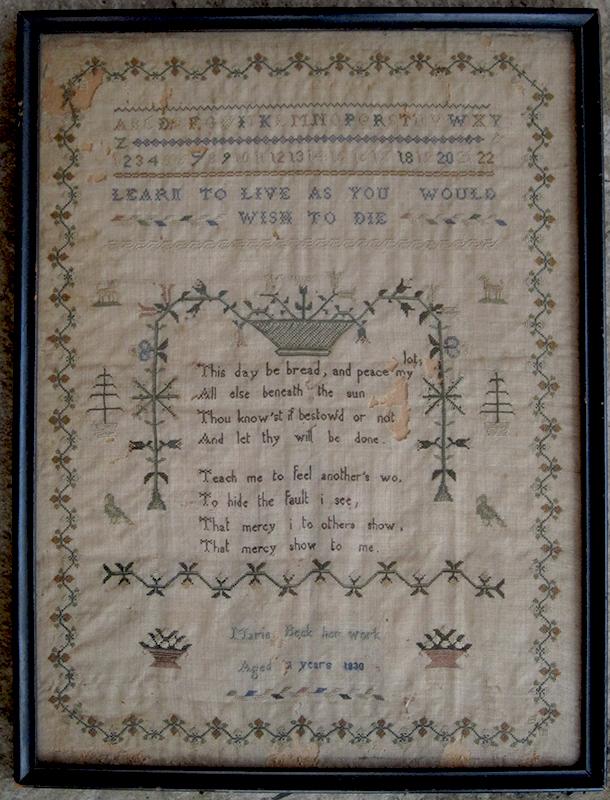 A B C D E F G H I K L M N O P Q R S T U V W X Y
Z
1 2 3 4 5 6 7 8 9 10 11 12 13 14 15 16 17 18 19 20 21 22
LEARN TO LIVE AS YOU WOULD
WISH TO DIE
lot,
This day be bread, and peace my
All else beneath the sun
Thou know'st if bestow'd or not
And let thy will be done.
Teach me to feel another's wo.
To hide the fault i see,
That mercy i to others show,
That mercy show to me.
Maria Beck her work
Aged years 1830